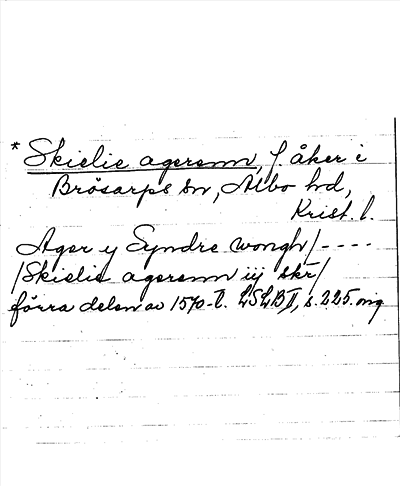 * Skielie agerenn, f. åker i
Brösarps sn, Albo hd,
Krist. l.
Ager y Syndre wongh/----
/Skielie agerenn iij skr/
förra delen av 1570-t. LSLB II, s. 225. orig